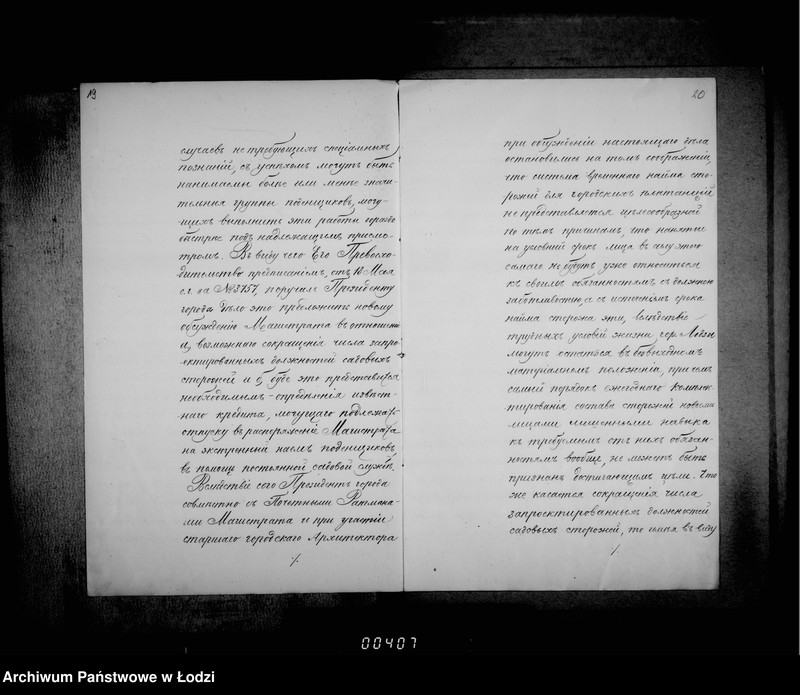 19
случаевъ не требующихъ спеціальныхъ
познаній, съ успѣхомъ могутъ быть
нанимаемы болѣе или менѣе значи-
тельныя группы поденщиковъ, могу-
щихъ выполнить эти работы гораздо
быстрѣе подъ надлежащимъ присмо-
тромъ. Въ виду чего Его Превосхо-
дительство предписаніемъ, отъ 18 Мая
с.г. за №3757, поручалъ Президенту
города дѣло это предложить новому
обсужденію Магистрата въ отношеніи
а, возможнаго сокращенія числа запро-
ектированныхъ должностей садовыхъ
сторожей и б, буде это представится
необходимымъ-опредѣленія извѣст-
наго кредита, могущаго подлежать
отпуску въ распоряженіе Магистрата
на экстренный наемъ поденщиковъ,
въ помощь постоянной садовой службѣ.
Вслѣдствіе сего Президентъ города
совмѣстно съ Почетными Ратмана-
ми Магистрата и при участіи
старшаго городскаго Архитектора
./.
20
при обсужденіи настоящаго дѣла
остановились на томъ соображеніи,
что система временнаго найма сто-
рожей для городскихъ плантацій
не представляется цѣлесообразной
по тѣмъ причинамъ, что нанятыя
на условный срокъ лица въ силу этого
самаго не будутъ уже относиться
къ своимъ обязанностямъ съ должною
заботливостью, а съ истеченіемъ срока
найма сторожа эти, вслѣдствіе
трудныхъ условій жизни гор. Лодзи
могутъ остаться въ безвыходномъ
матеріальномъ положеніи, при чемъ
самый порядокъ ежегоднаго комплек-
тированія состава сторожей новыми
лицами лишенными навыка
къ требуемымъ отъ нихъ обязан-
ностямъ вообще, не можетъ быть
признанъ достигающимъ цѣли. Что
же касается сокращенія числа
запроектированныхъ должностей
садовыхъ сторожей, то имѣя въ виду
./.
00407
Archiwum Państwowe w Łodzi